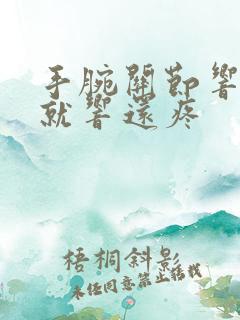 手腕關節響
就響還疼
梧桐斜影
未经同意禁止转载